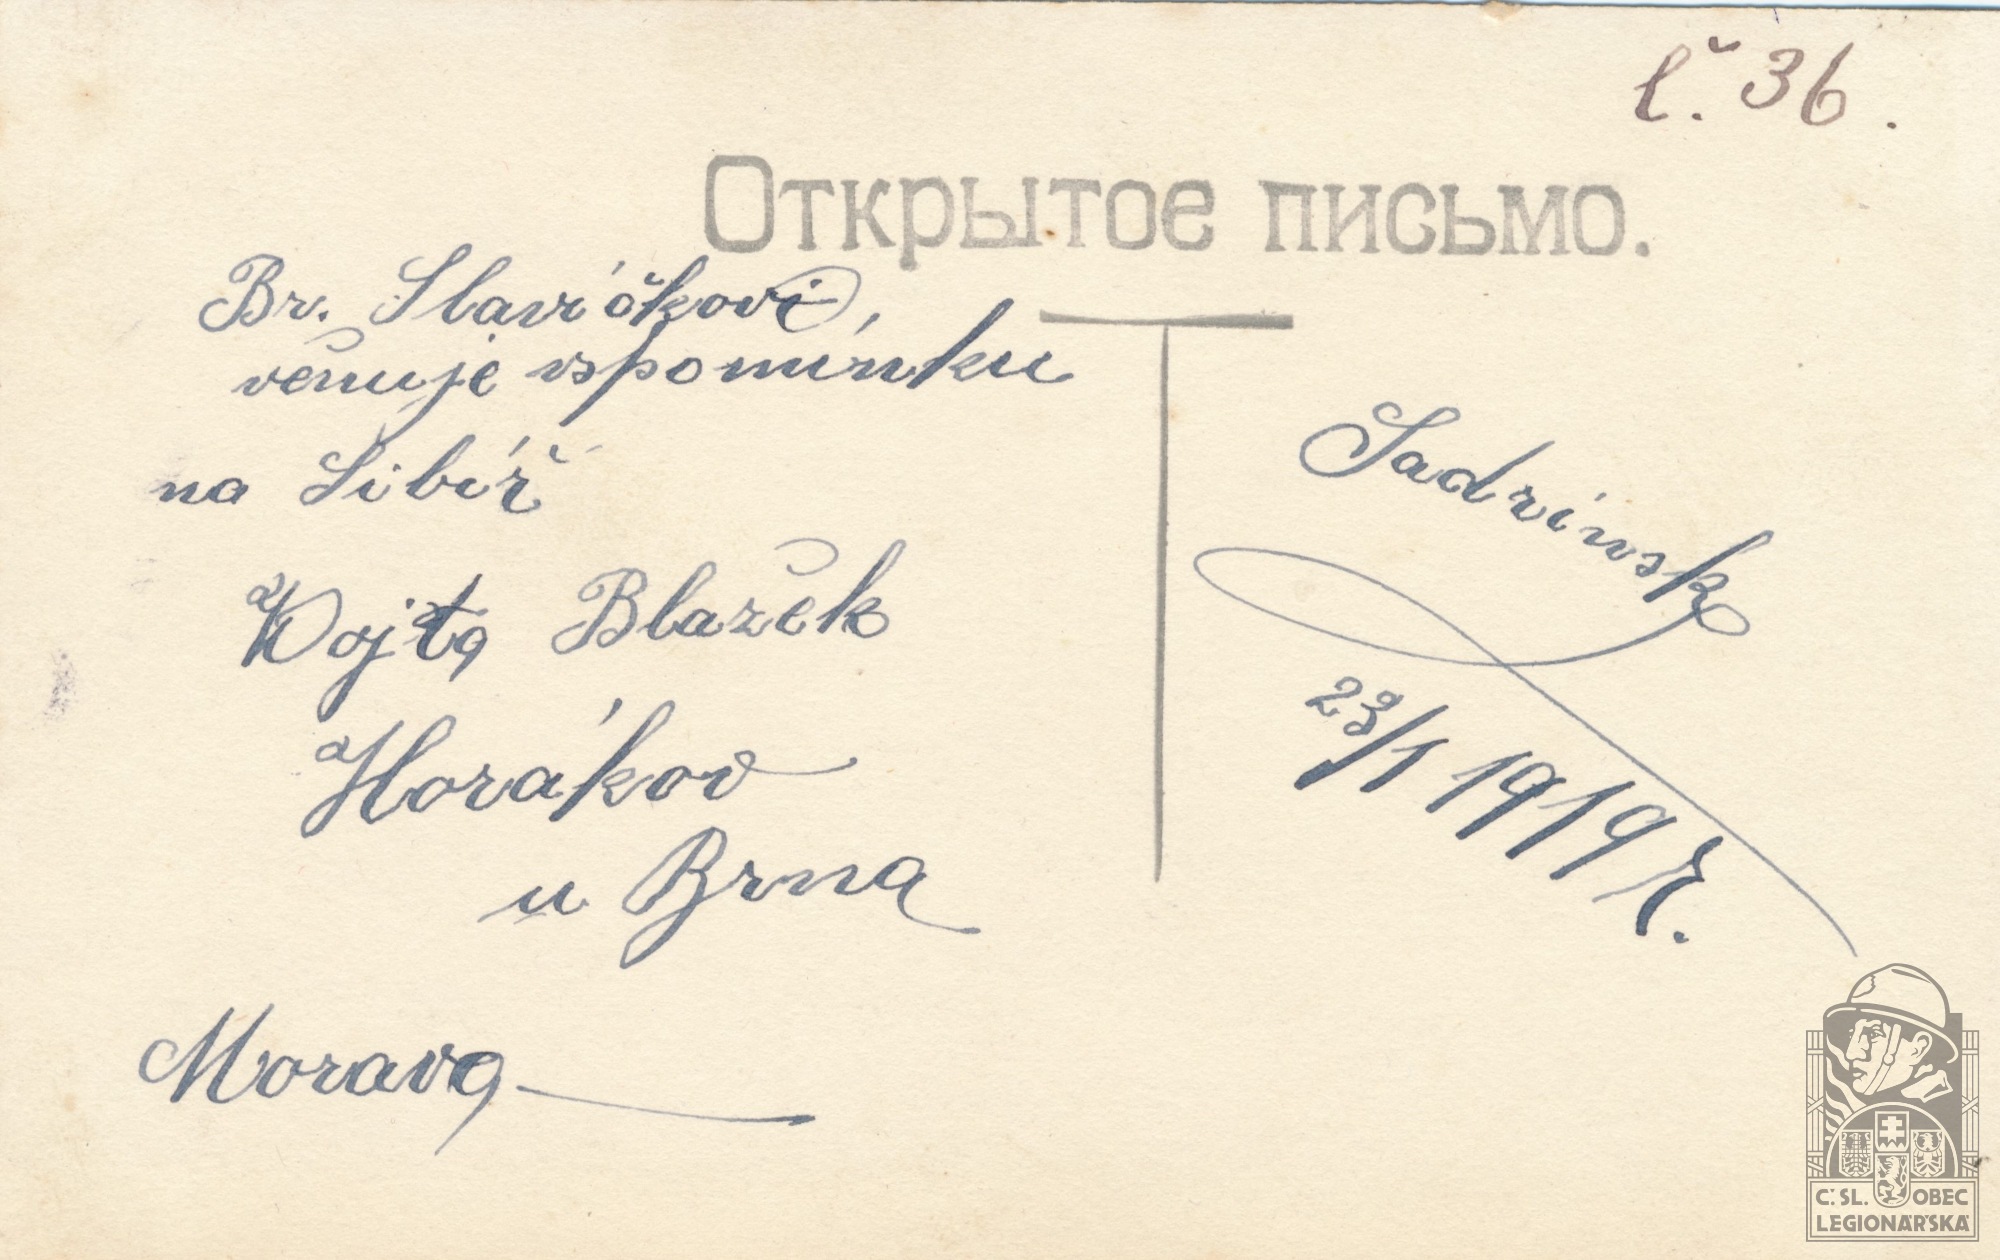 č. 36.
Открытое письмо.
Br. Slavíčkovi,
věnuje vspomínku
na Sibíř
Vojta Blažek
Horákov
u Brna
Morava
Šadrinsk
23/1 1919 r.
Č. SL. OBEC
LEGIONÁŘSKÁ